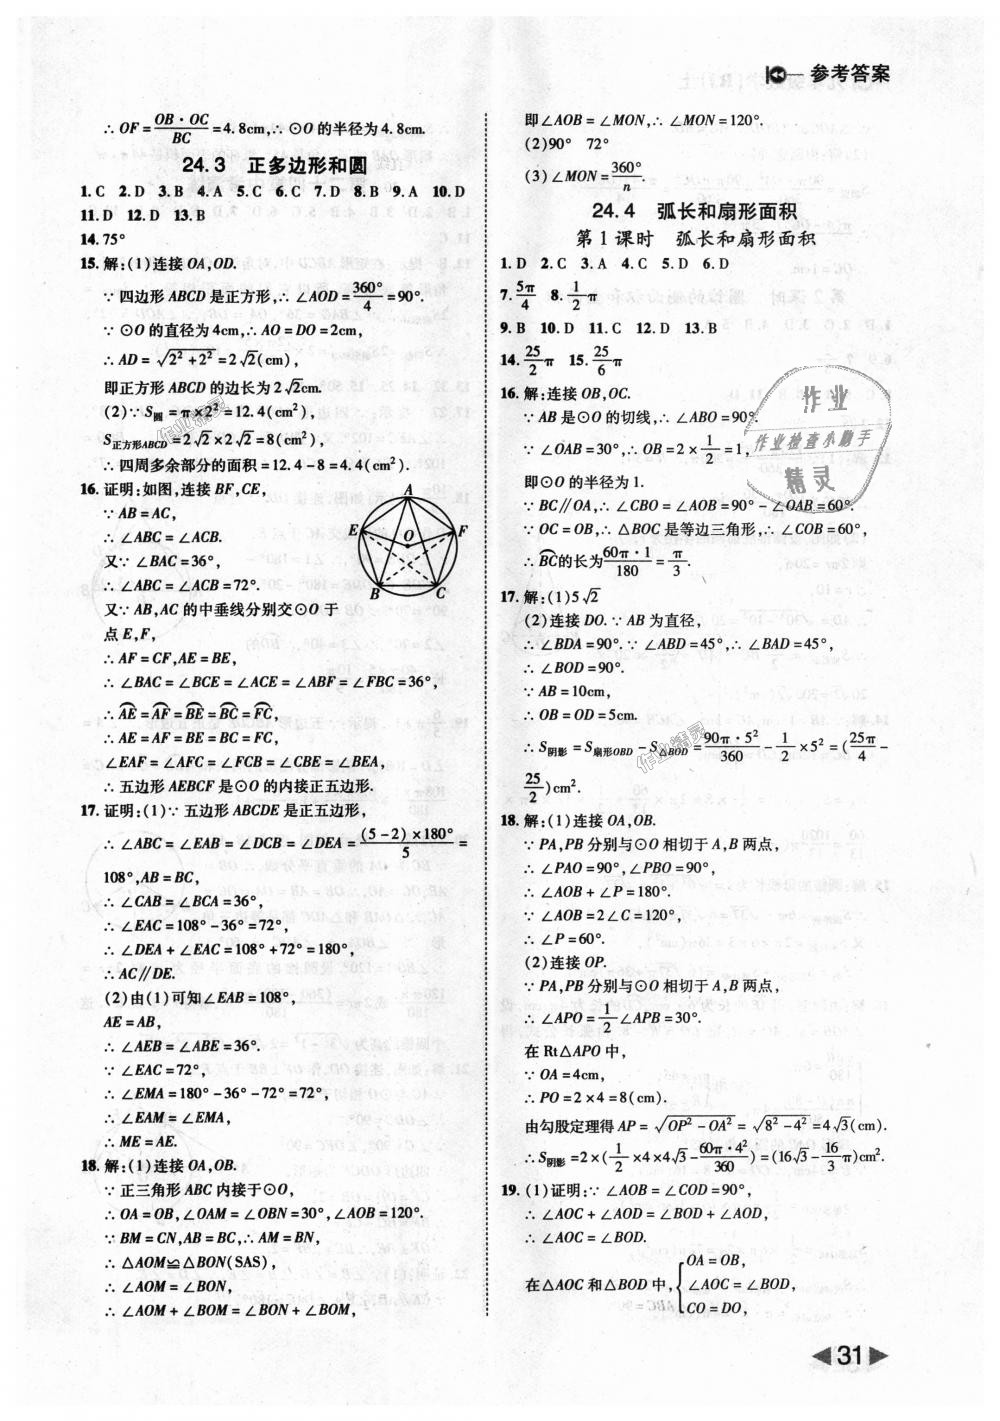 参考答案
∴ OF = OB·OC/BC = 4.8cm,∴ ⊙O 的半径为 4.8cm.
24.3 正多边形和圆
1. C 2. D 3. B 4. A 5. C 6. C 7. D 8. B 9. A 10. D
11. D 12. D 13. B
14. 75°
15. 解:(1)连接 OA,OD.
∵ 四边形 ABCD 是正方形,∴ ∠AOD = 360°/4 = 90°.
∵ ⊙O 的直径为 4cm,∴ AO = DO = 2cm,
∴ AD = √(2² + 2²) = 2√2(cm),
即正方形 ABCD 的边长为 2√2cm.
(2)∵ S圆 = π × 2² = 12.4(cm²),
S正方形ABCD = 2√2 × 2√2 = 8(cm²),
∴ 四周多余部分的面积 = 12.4 - 8 = 4.4(cm²).
16. 证明:如图,连接 BF,CE,
∵ AB = AC,
∴ ∠ABC = ∠ACB.
又∵ ∠BAC = 36°,
∴ ∠ABC = ∠ACB = 72°.
又∵ AB,AC 的中垂线分别交⊙O 于
点 E,F,
∴ AF = CF,AE = BE,
∴ ∠BAC = ∠BCE = ∠ACE = ∠ABF = ∠FBC = 36°,
∴ ⌒AE = ⌒AF = ⌒BE = ⌒BC = ⌒FC,
∴ AE = AF = BE = BC = FC,
∠EAF = ∠AFC = ∠FCB = ∠CBE = ∠BEA,
∴ 五边形 AEBCF 是⊙O 的内接正五边形.
A
E
F
O
B
C
17. 证明:(1)∵ 五边形 ABCDE 是正五边形,
∴ ∠ABC = ∠EAB = ∠DCB = ∠DEA = (5-2)×180°/5 =
108°,AB = BC,
∴ ∠CAB = ∠BCA = 36°,
∴ ∠EAC = 108° - 36° = 72°,
∴ ∠DEA + ∠EAC = 108° + 72° = 180°,
∴ AC∥DE.
(2)由(1)可知∠EAB = 108°,
AE = AB,
∴ ∠AEB = ∠ABE = 36°.
∵ ∠EAC = 72°,
∴ ∠EMA = 180° - 36° - 72° = 72°,
∴ ∠EAM = ∠EMA,
∴ ME = AE.
18. 解:(1)连接 OA,OB.
∵ 正三角形 ABC 内接于⊙O,
∴ OA = OB,∠OAM = ∠OBN = 30°,∠AOB = 120°.
∵ BM = CN,AB = BC,∴ AM = BN,
∴ △AOM≌△BON(SAS),
∴ ∠AOM = ∠BON,
∴ ∠AOM + ∠BOM = ∠BON + ∠BOM,
即∠AOB = ∠MON,∴ ∠MON = 120°.
(2)90° 72°
(3)∠MON = 360°/n.
24.4 弧长和扇形面积
第 1 课时 弧长和扇形面积
1. D 2. C 3. A 4. C 5. D 6. D
7. 5π/4 8. 1/2 π
9. B 10. D 11. C 12. D 13. B
14. 25/2 π 15. 25/6 π
16. 解:连接 OB,OC.
∵ AB 是⊙O 的切线,∴ ∠ABO = 90°.
∵ ∠OAB = 30°,∴ OB = 2 × 1/2 = 1,
即⊙O 的半径为 1.
∵ BC∥OA,∴ ∠CBO = ∠AOB = 90° - ∠OAB = 60°.
∵ OC = OB,∴ △BOC 是等边三角形,∴ ∠COB = 60°,
∴ ⌒BC的长为 60π·1/180 = π/3.
17. 解:(1)5√2
(2)连接 DO.∵ AB 为直径,
∴ ∠BDA = 90°.∵ ∠ABD = 45°,∴ ∠BAD = 45°,
∴ ∠BOD = 90°.
∵ AB = 10cm,
∴ OB = OD = 5cm.
∴ S阴影 = S扇形OBD - S△BOD = 90π·5²/360 - 1/2 × 5² = (25π/4 -
25/2)cm².
18. 解:(1)连接 OA,OB.
∵ PA,PB 分别与⊙O 相切于 A,B 两点,
∴ ∠PAO = 90°,∠PBO = 90°.
∴ ∠AOB + ∠P = 180°.
∵ ∠AOB = 2∠C = 120°,
∴ ∠P = 60°.
(2)连接 OP.
∵ PA,PB 分别与⊙O 相切于 A,B 两点,
∴ ∠APO = 1/2 ∠APB = 30°.
在 Rt△APO 中,
∵ OA = 4cm,
∴ PO = 2 × 4 = 8(cm).
由勾股定理得 AP = √(OP² - OA²) = √(8² - 4²) = 4√3(cm).
∴ S阴影 = 2 × (1/2 × 4 × 4√3 - 60π·4²/360) = (16√3 - 16/3 π)cm².
19. (1)证明:∵ ∠AOB = ∠COD = 90°,
∴ ∠AOC + ∠AOD = ∠BOD + ∠AOD,
∴ ∠AOC = ∠BOD.
在△AOC 和△BOD 中,{OA = OB,
∠AOC = ∠BOD,
CO = DO,
作业
作业检查小助手
精灵
作业精灵
作业精灵
31